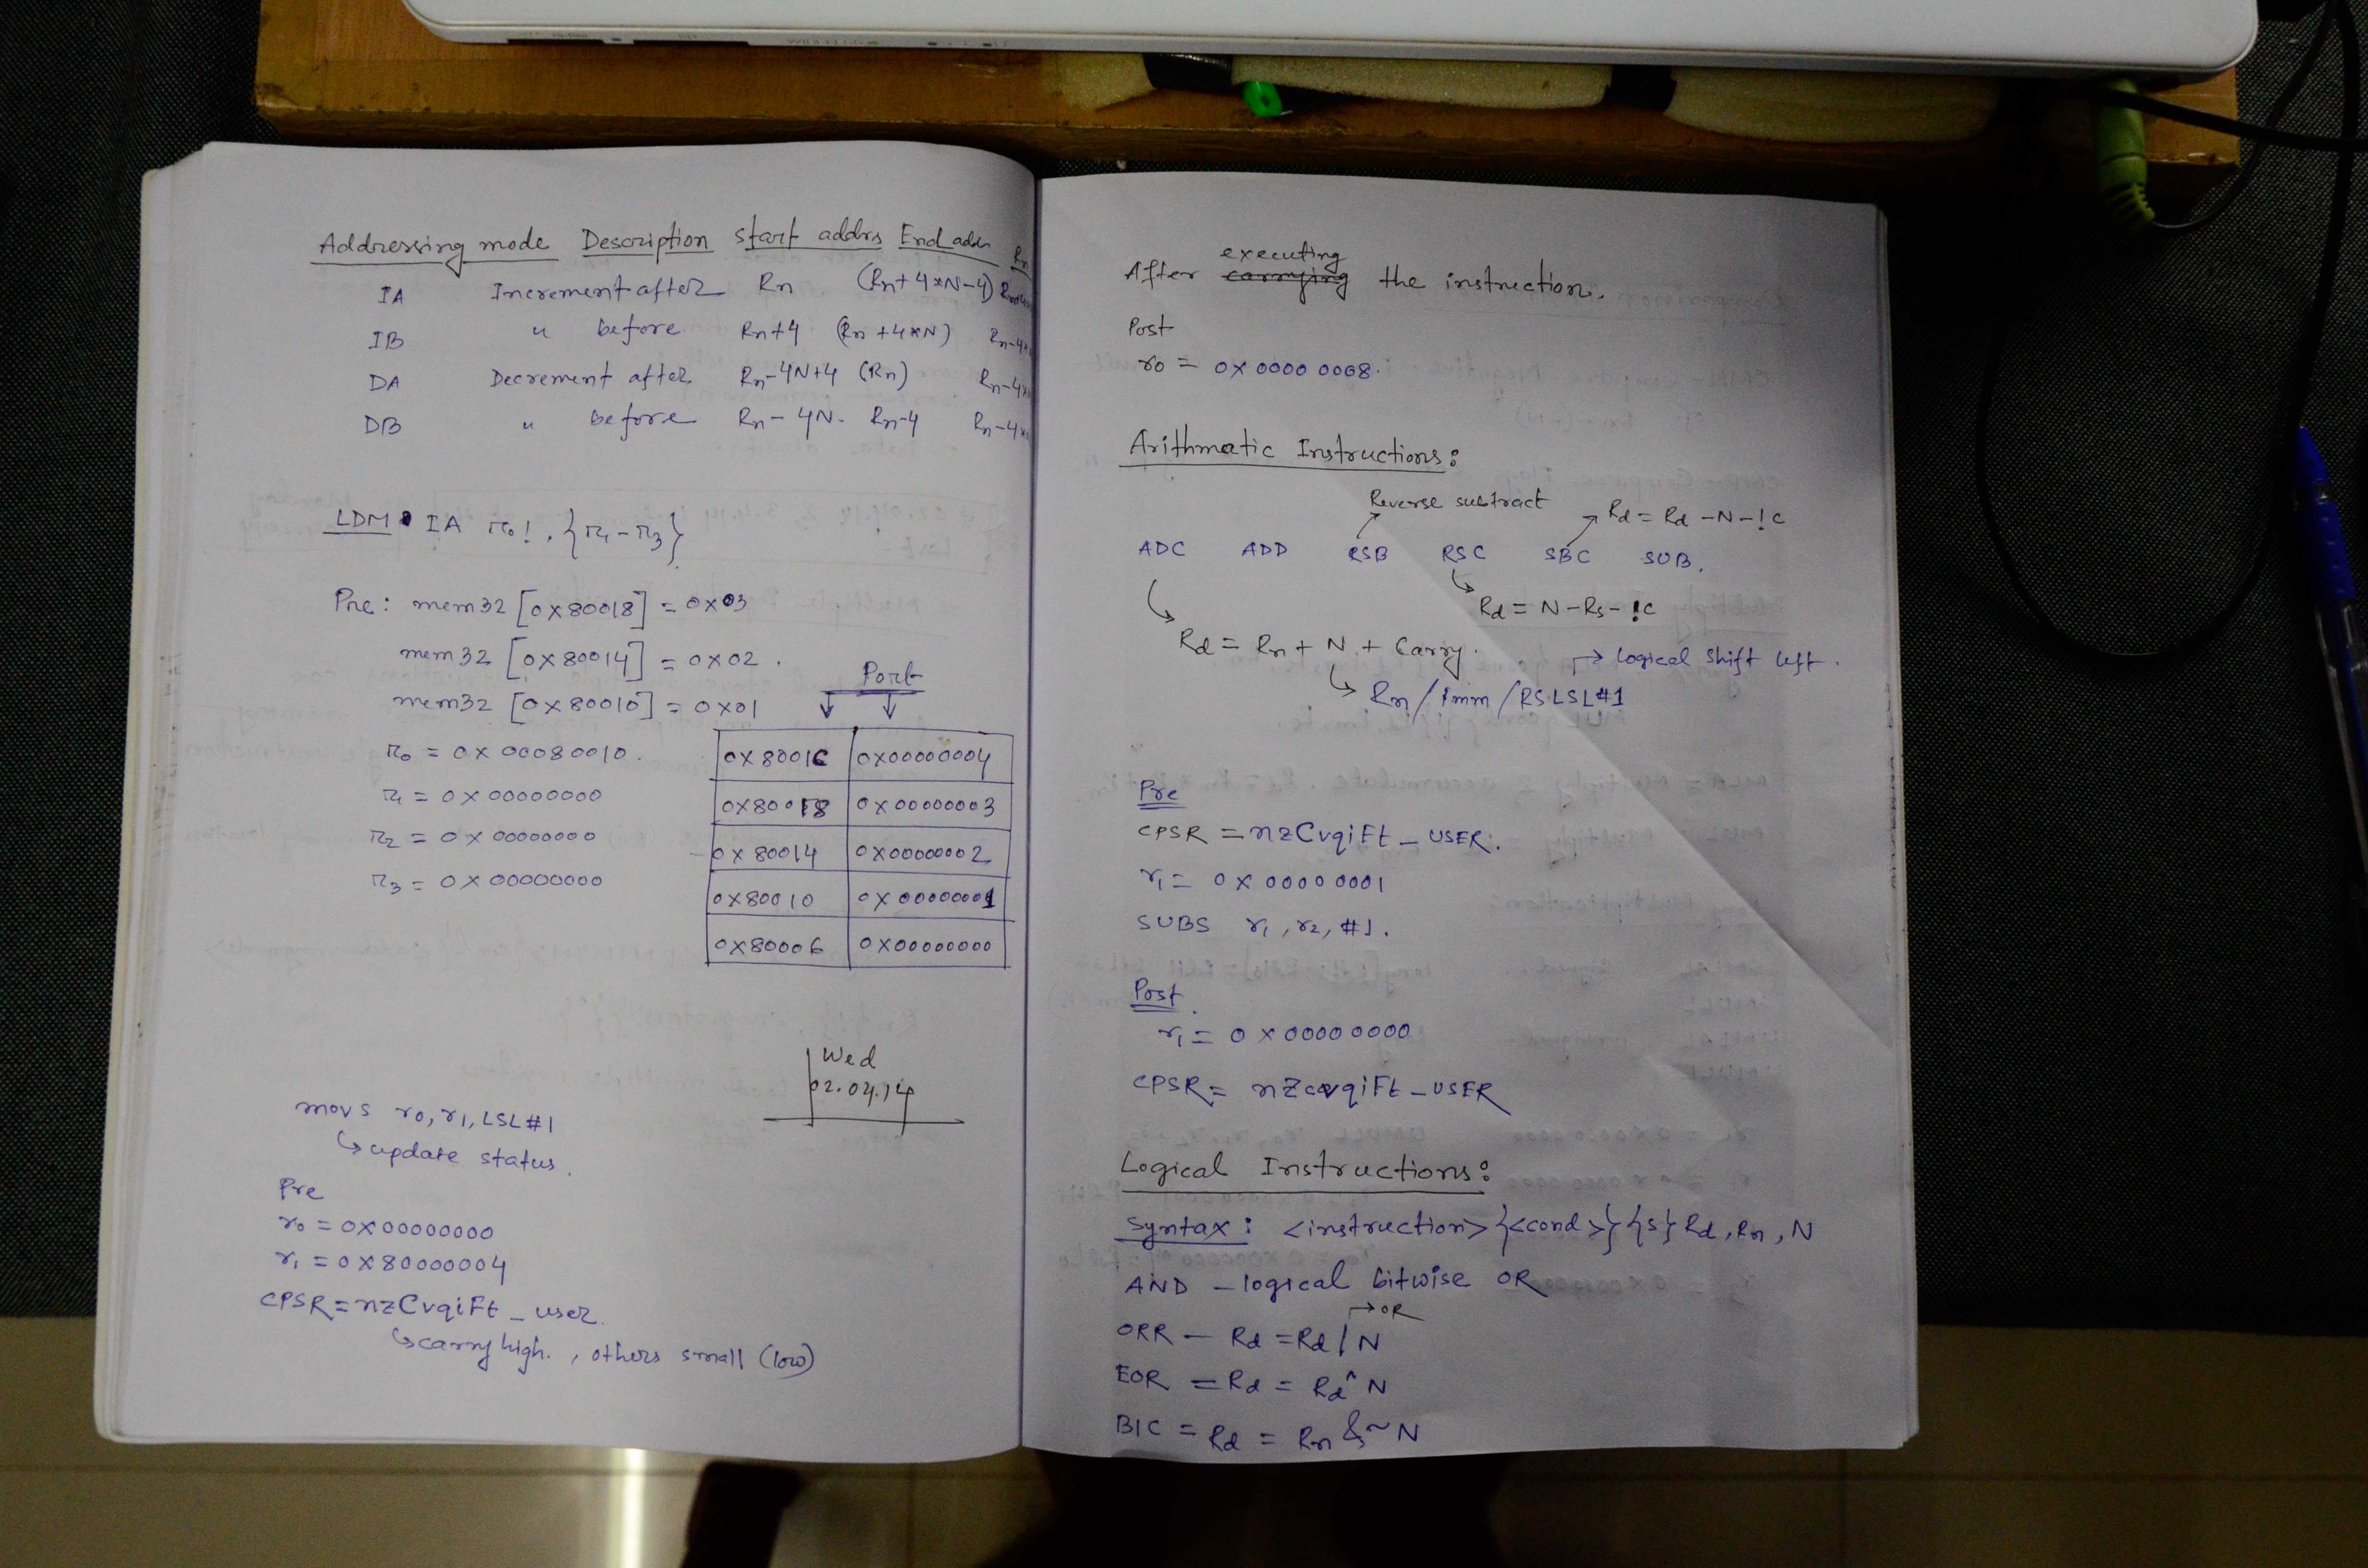 Addressing mode Description Start addrs End addr Rn
IA Increment after Rn (Rn+4*N-4)
IB " before Rn+4 (Rn+4*N) Rn-4*
DA Decrement after Rn-4N+4 (Rn) Rn-4*
DB " before Rn-4N. Rn-4 Rn-4*
LDM IA r0!, {r1-r3}
Pre: mem32 [0x80018] = 0x03
mem32 [0x80014] = 0x02.
mem32 [0x80010] = 0x01
r0 = 0x00080010.
r1 = 0x00000000
r2 = 0x00000000
r3 = 0x00000000
0x8001C 0x00000004
0x80018 0x00000003
0x80014 0x00000002
0x80010 0x00000001
0x80006 0x00000000
Wed
02.04.14
movs r0, r1, LSL#1
↳ update status.
Pre
r0 = 0x00000000
r1 = 0x80000004
CPSR = nzCvqiFt_user.
↳ carry high. , others small (low)
executing
After carrying the instruction.
Post
r0 = 0x0000 0008.
Arithmatic Instructions:
Reverse subtract
Rd = Rd -N-!C
ADC ADD RSB RSC SBC SUB.
Rd = N-Rs-!C
Rd = Rn + N + Carry.
→ Logical Shift left.
↳ Rn/Imm/RS LSL#1
Pre
CPSR = nzCvqiFt_USER.
r1 = 0x00000001
SUBS r1, r2, #1.
Post
r1 = 0x00000000
CPSR = nZcvqiFt_USER
Logical Instructions:
Syntax: <instruction>{<cond>}{s} Rd, Rn, N
AND - logical bitwise OR
→ OR
ORR - Rd = Rd | N
EOR = Rd = Rd ^ N
BIC = Rd = Rn & ~N